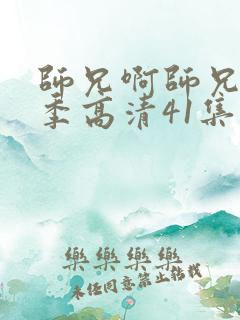 師兄啊師兄
季高清41集
樂樂樂樂
未經同意禁止轉載